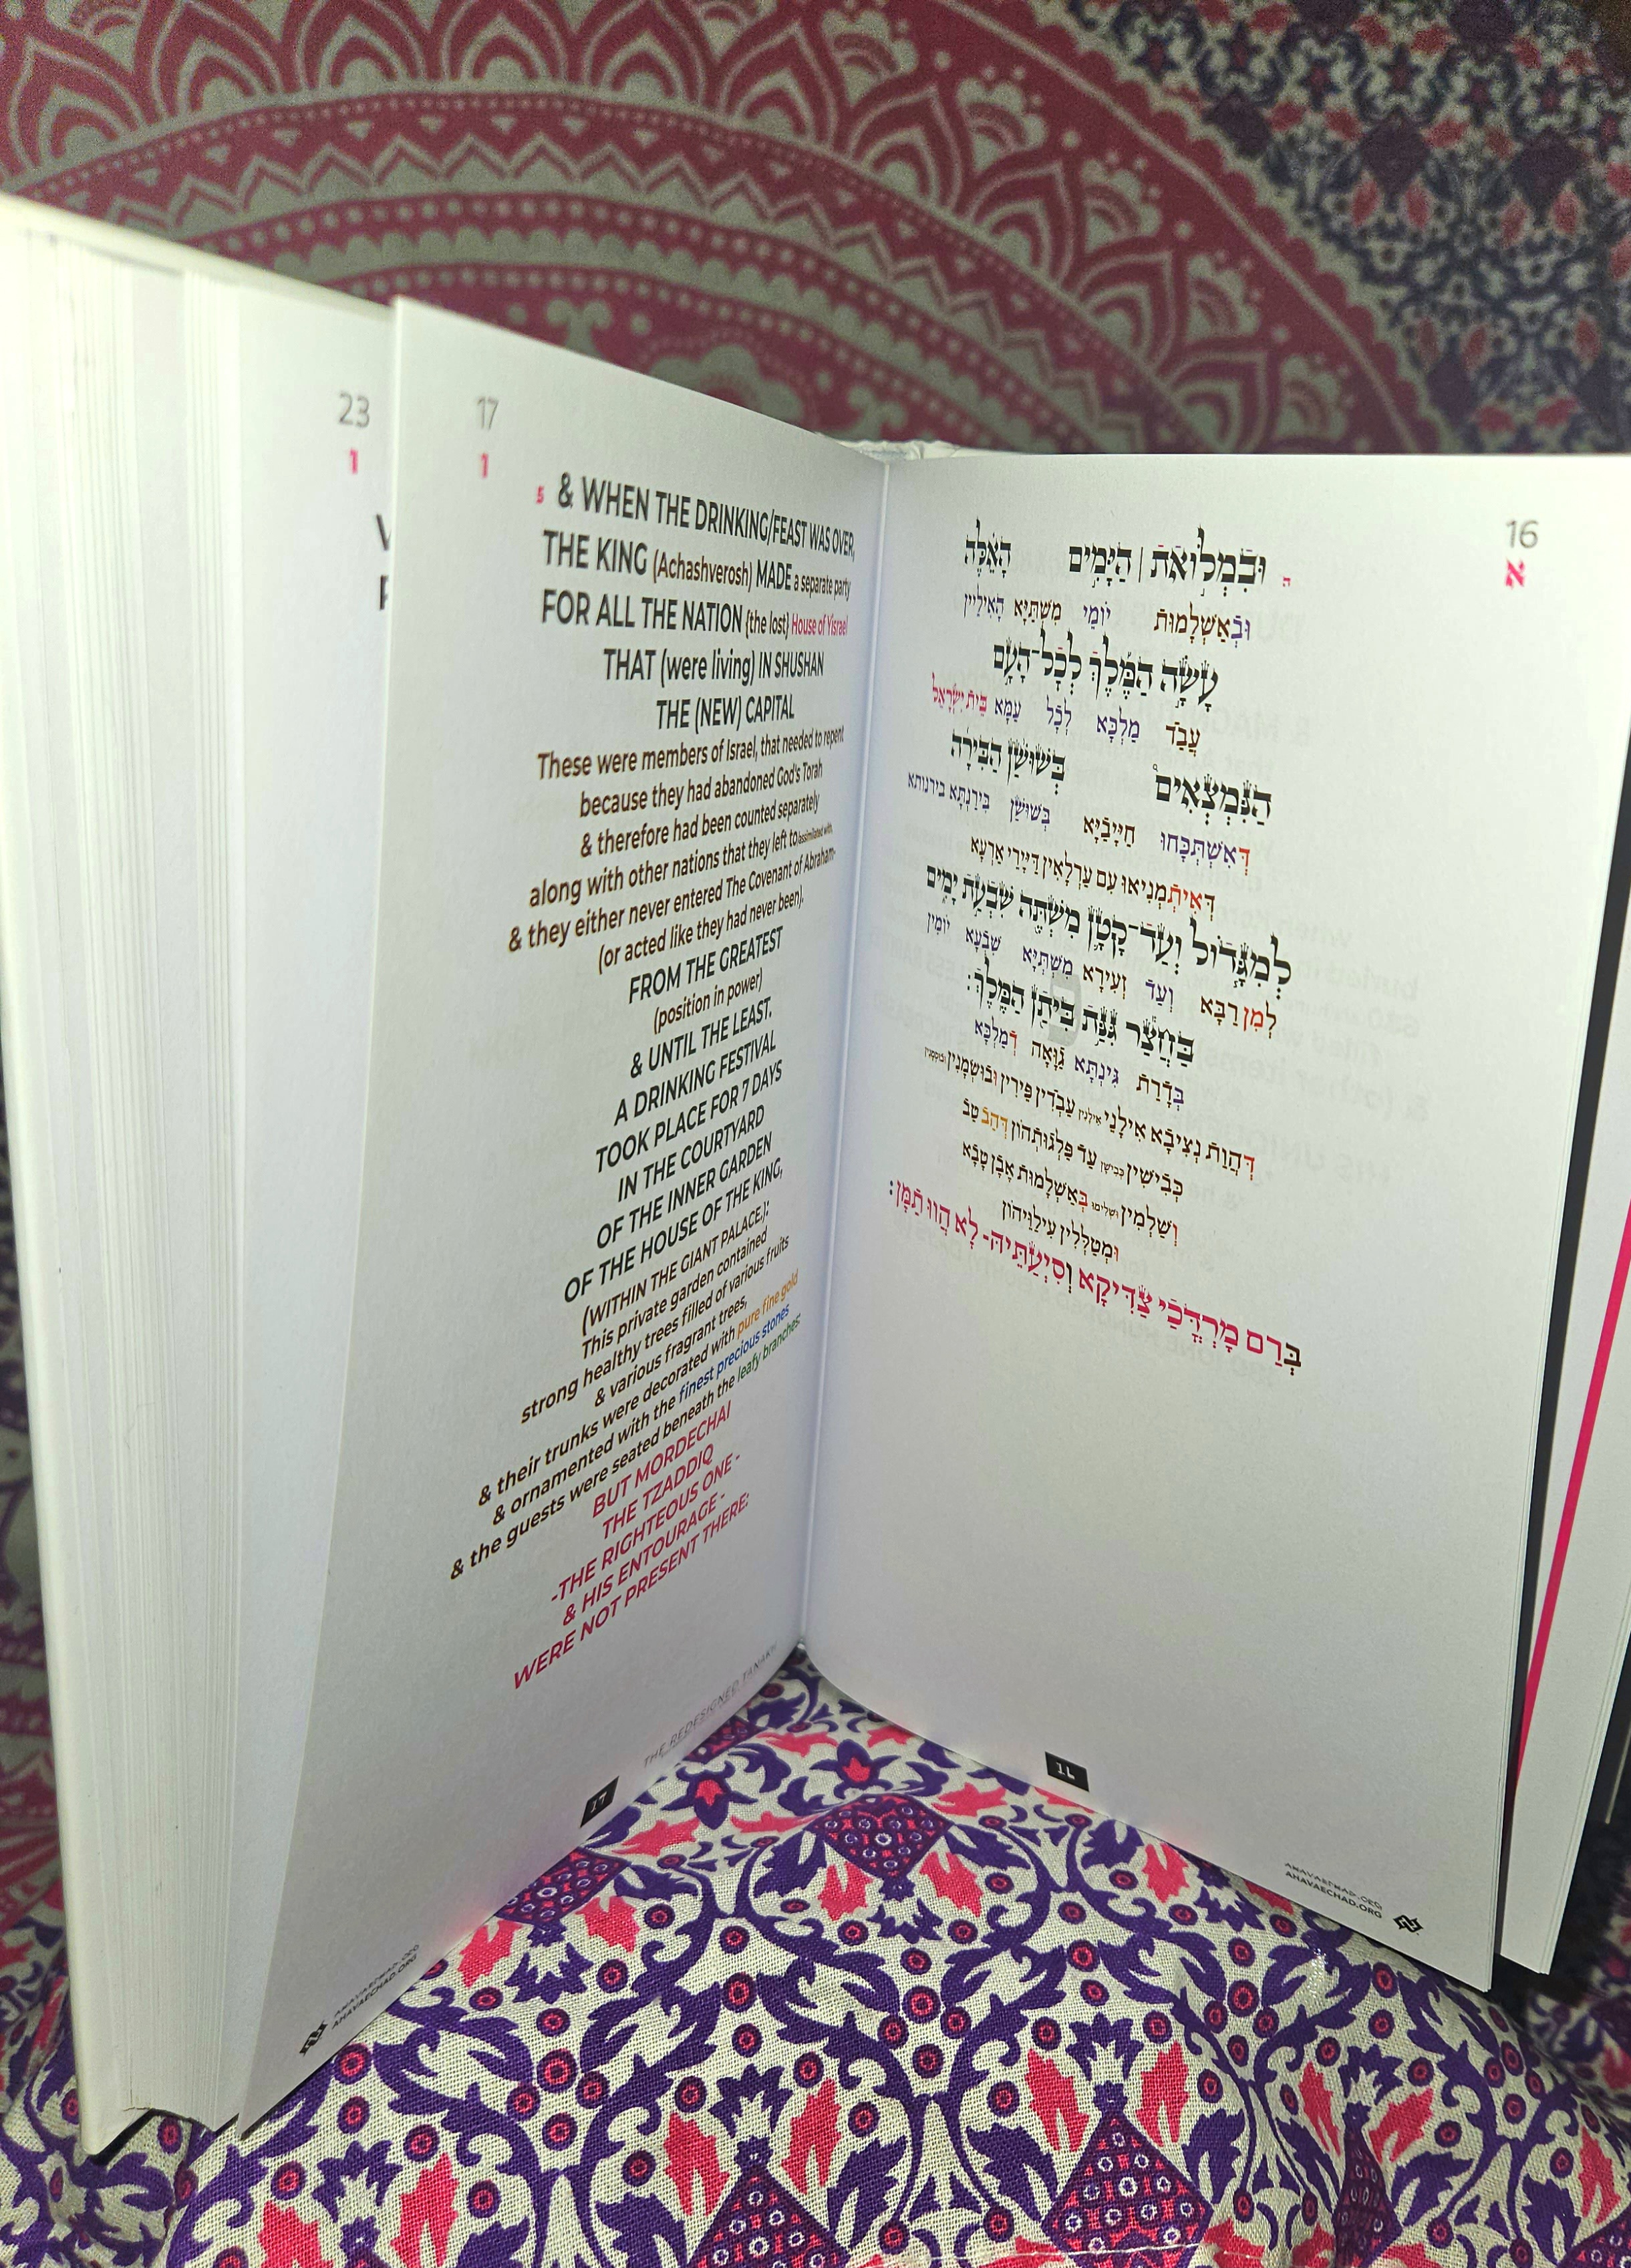 23
1
17
1
5 & WHEN THE DRINKING/FEAST WAS OVER,
THE KING (Achashverosh) MADE a separate party
FOR ALL THE NATION (the lost) House of Yisrael
THAT (were living) IN SHUSHAN
THE (NEW) CAPITAL
These were members of Israel, that needed to repent
because they had abandoned God's Torah
& therefore had been counted separately
along with other nations that they left to assimilated with,
& they either never entered The Covenant of Abraham-
(or acted like they had never been).
FROM THE GREATEST
(position in power)
& UNTIL THE LEAST,
A DRINKING FESTIVAL
TOOK PLACE FOR 7 DAYS
IN THE COURTYARD
OF THE INNER GARDEN
OF THE HOUSE OF THE KING,
(WITHIN THE GIANT PALACE,):
This private garden contained
strong healthy trees filled of various fruits
& various fragrant trees,
& their trunks were decorated with pure fine gold
& ornamented with the finest precious stones
& the guests were seated beneath the leafy branches:
BUT MORDECHAI
THE TZADDIQ
-THE RIGHTEOUS ONE -
& HIS ENTOURAGE -
WERE NOT PRESENT THERE:
THE REDESIGNED TANAKH
17
AHAVAECHAD.ORG
AHAVAECHAD.ORG
16
א
ה וּבִמְלוֹאת | הַיָּמִים הָאֵלֶּה
וּבְאַשְׁלָמוּת יוֹמֵי מִשְׁתַּיָּא הָאִילֵּין
עָשָׂה הַמֶּלֶךְ לְכָל־הָעָם
עֲבַד מַלְכָּא לְכָל עַמָּא בֵּית יִשְׂרָאֵל
הַנִּמְצְאִים בְּשׁוּשַׁן הַבִּירָה
דְּאִשְׁתְּכָחוּ חַיָּיבַיָּא בְּשׁוּשַׁן בִּירַנְתָּא בירנותא
דְּאִיתְמְנִיאוּ עִם עַרְלָאִין דַּיָּירֵי אַרְעָא
לְמִגָּדוֹל וְעַד־קָטָן מִשְׁתֶּה שִׁבְעַת יָמִים
לְמִן רַבָּא וְעַד זְעֵירָא מִשְׁתְּיָא שַׁבְעָא יוֹמִין
בַּחֲצַר גִּנַּת בִּיתַן הַמֶּלֶךְ:
בְּדָרַת גִּינְתָא גַּוָּאָה דְּמַלְכָּא
דַּהֲוַת נְצִיבָא אִילָנֵי אילנין עָבְדִין פֵּירִין וּבוּשְׂמָנִין
כְּבִישִׁין כבישן עַד פַּלְגוּתְהוֹן דְּהַב טַב
וְשַׁלְמִין ושלימו בְּאַשְׁלָמוּת אֶבֶן טָבָא
וּמְטַלְלִין עִילָוֵיהוֹן
בְּרַם מָרְדֳּכַי צַדִּיקָא וְסִיעַתֵּיהּ- לָא הֲווּ תַמָּן:
16
AHAVAECHAD.ORG
AHAVAECHAD.ORG